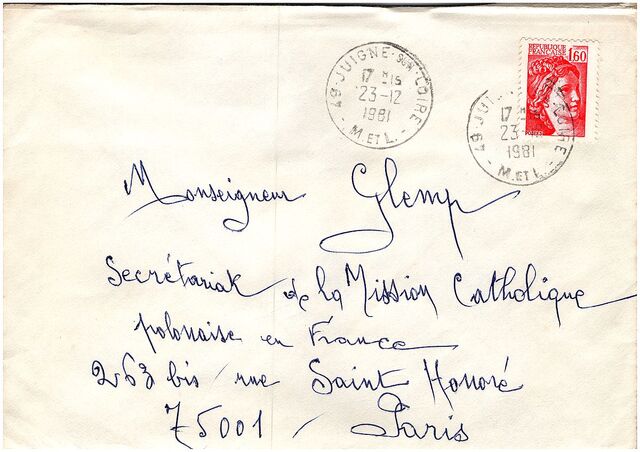 49-JUIGNE-SUR-LOIRE
17 Hs
23-12
1981
- M. ET L. -
REPUBLIQUE
FRANCAISE
1,60
49-JUI LOIRE
17
23
1981
- M. ET L. -
Monseigneur Glemp
Secrétariat de la Mission Catholique
polonaise en France
263 bis / rue Saint Honoré
75001 / Paris